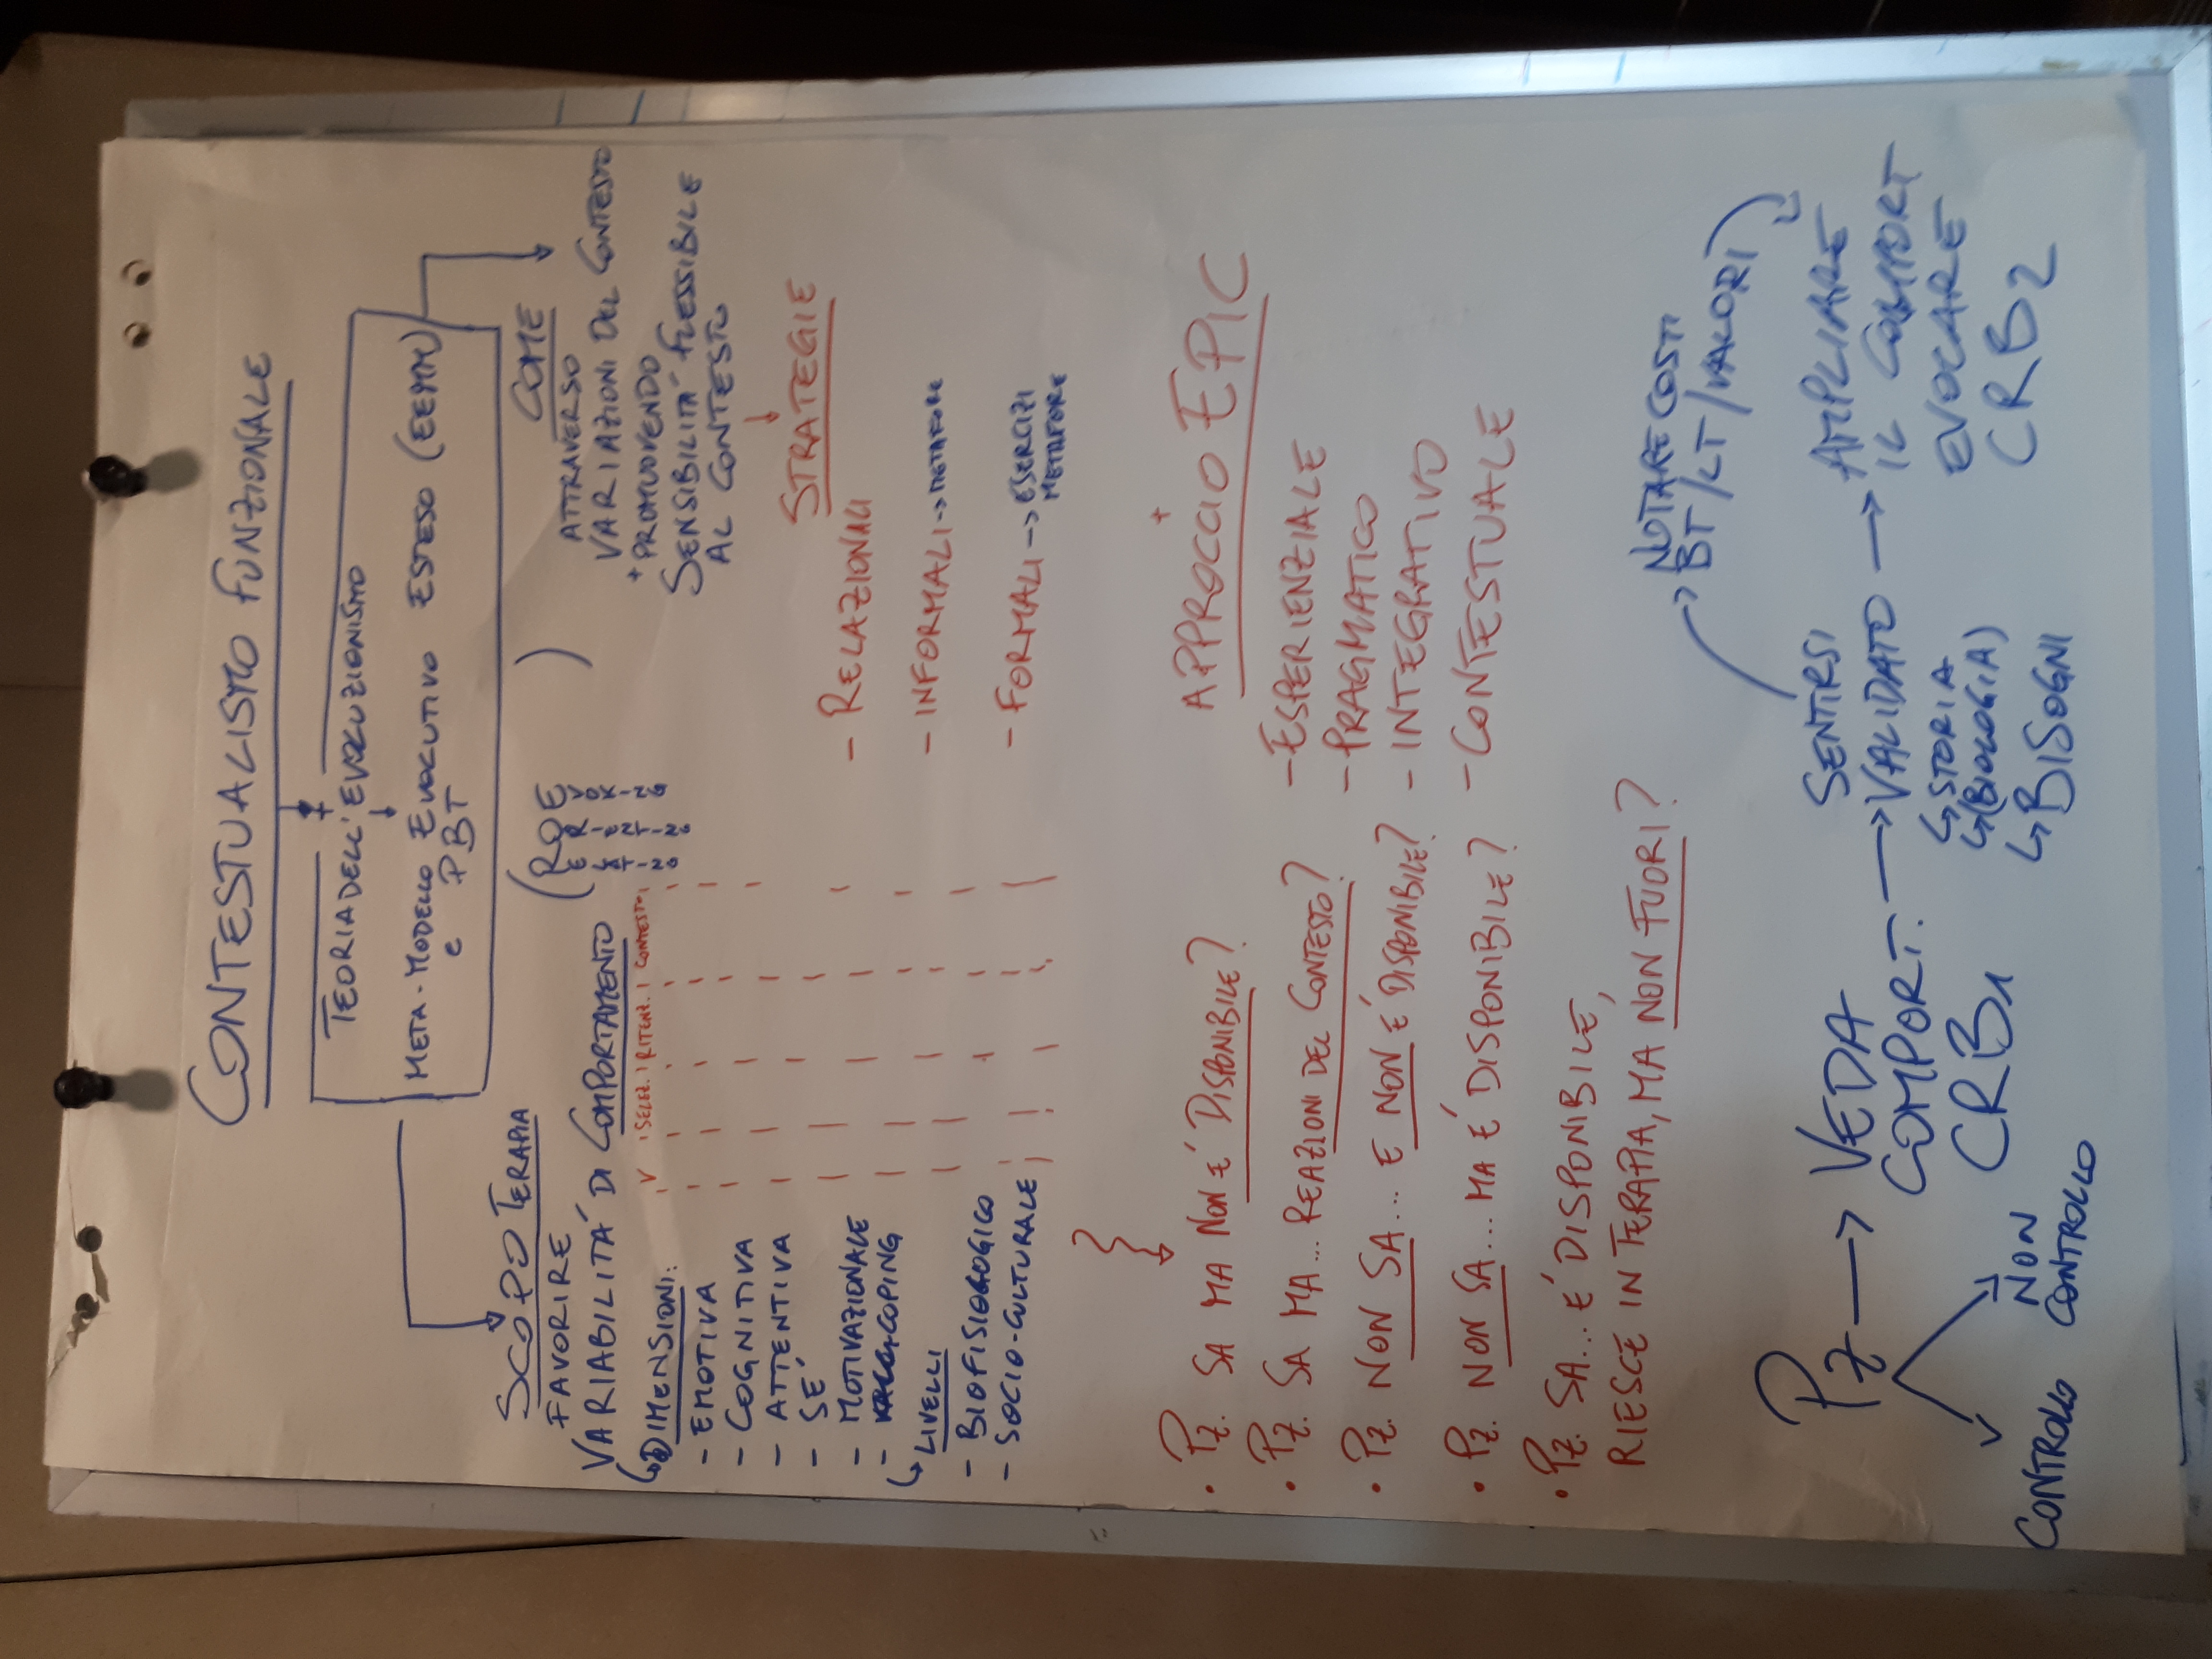 CONTESTUALISMO FUNZIONALE
+
TEORIA DELL'EVOLUZIONISMO
META-MODELLO EVOLUTIVO ESTESO (EEMM)
e PBT
SCOPO TERAPIA
FAVORIRE
VARIABILITA' DI COMPORTAMENTO
DIMENSIONI:
V | SELEZ. | RITENZ. | CONTESTO
- EMOTIVA
- COGNITIVA
- ATTENTIVA
- SE'
- MOTIVAZIONALE
- COPING
LIVELLI
- BIOFISIOLOGICO
- SOCIO-CULTURALE
COME
ATTRAVERSO
VARIAZIONI DEL CONTESTO
+ PROMUOVENDO
SENSIBILITA' FLESSIBILE
AL CONTESTO
STRATEGIE
- RELAZIONALI
- INFORMALI -> METAFORE
- FORMALI -> ESERCIZI
METAFORE
+
APPROCCIO EPIC
- ESPERIENZIALE
- PRAGMATICO
- INTEGRATIVO
- CONTESTUALE
• PZ. SA MA NON E' DISPONIBILE?
• PZ. SA MA... REAZIONI DEL CONTESTO?
• PZ. NON SA... E NON E' DISPONIBILE?
• PZ. NON SA... MA E' DISPONIBILE?
• PZ. SA... E' DISPONIBILE,
RIESCE IN TERAPIA, MA NON FUORI?
NOTARE COSTI
BT/LT/VALORI
PZ -> VEDA
COMPORT.
CRB1
-> SENTIRSI
VALIDATO
STORIA
(BIOLOGIA)
BISOGNI
-> AMPLIARE
IL COMPORT
EVOCARE
CRB2
CONTROLLO
NON
CONTROLLO